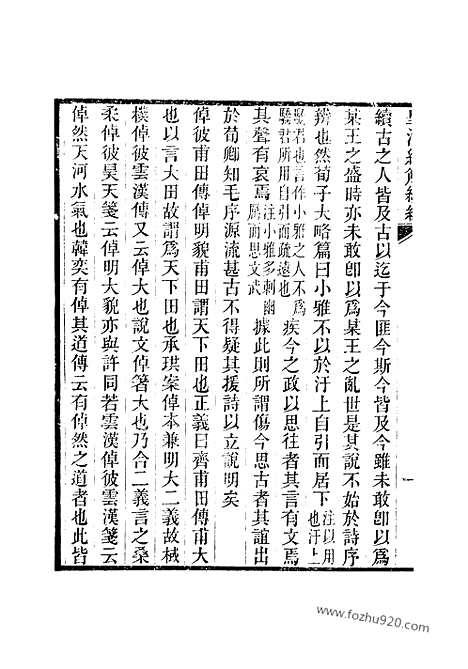 皇清經解續編
一
續古之人皆及古以迄于今匪今斯今皆及今雖未敢卽以爲
某王之盛時亦未敢卽以爲某王之亂世是其說不始於詩序
辨也然荀子大略篇曰小雅不以於汙上自引而居下注以用也汙上
驕君也言作小雅之人不爲驕君所用自引而疏遠也疾今之政以思往者其言有文焉
其聲有哀焉注小雅多刺幽厲而思文武據此則所謂傷今思古者其誼出
於荀卿知毛序源流甚古不得疑其援詩以立說明矣
倬彼甫田傳倬明貌甫田謂天下田也正義曰齊甫田傳甫大
也以言大田故謂爲天下田也承珙案倬本兼明大二義故棫
樸倬彼雲漢傳又云倬大也說文倬箸大也乃合二義言之桑
柔倬彼昊天箋云倬明大貌亦與許同若雲漢倬彼雲漢箋云
倬然天河水氣也韓奕有倬其道傳云有倬然之道者也此皆
www.fozhu920.com